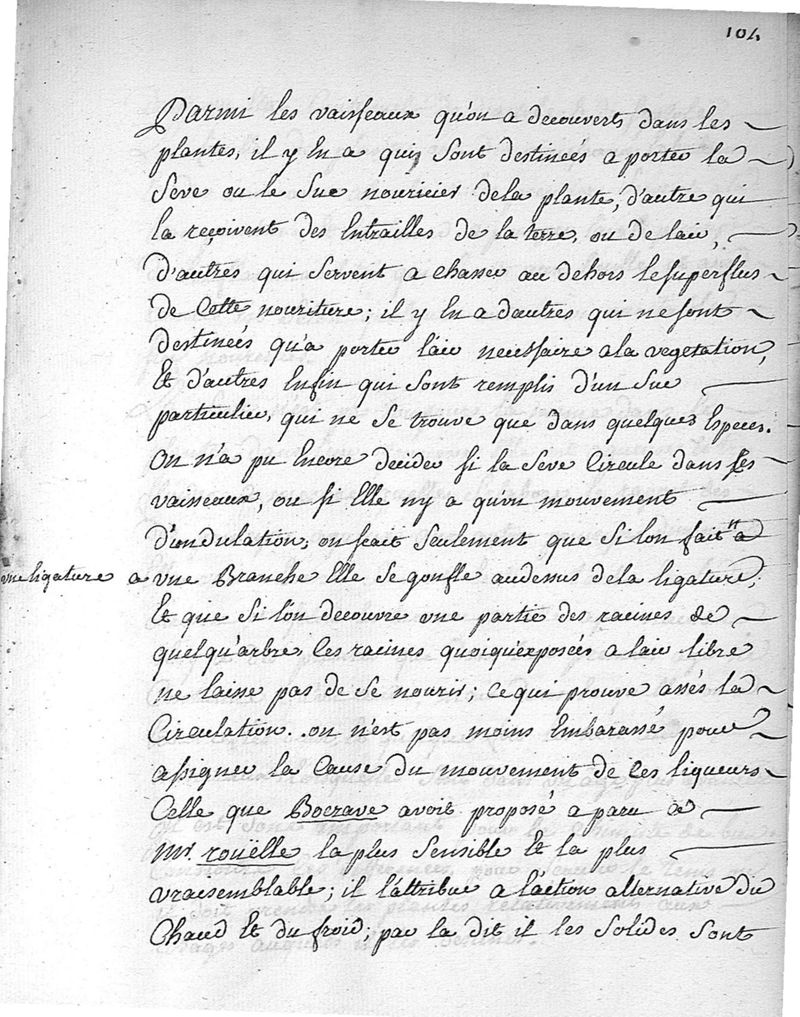 104
Parmi les vaisseaux qu'on a decouverts dans les
plantes, il y En a quis sont destineés a porter la
Seve ou le Suc nouricier dela plante, d'autre qui
la reçoivent des Entrailles de la terre, ou de lair,
d'autres qui servent a chasser au dehors le superflus
de Cette nouriture; il y En a d'autres qui ne sont
destineés qu'a porter l'air necessaire a la vegetation,
Et d'autres Enfin qui sont remplis d'un Suc
particulier, qui ne se trouve que dans quelques Especes.
On n'a pu Encore decider si la Seve Circule dans ses
vaisseaux, ou si Elle ny a qu'un mouvement
D'ondulation; on scait seulement que si lon fait a
une ligature a une Branche Elle se gonfle audessus dela ligature;
Et que si l'on decouvre une partie des racines de
quelqu'arbre, les racines quoiqu'exposeés a lair libre
ne laisse pas de se nourir; ce qui prouve assés la
Circulation. on n'est pas moins Embarassé pour
assigner la Cause du mouvement de Ces liqueurs
Celle que Boerave avoit proposé a paru a
Mr. rouëlle la plus sensible Et la plus
vraesemblable; il l'attribue a l'action alternative du
Chaud Et du froid; par la dit il les solides sont